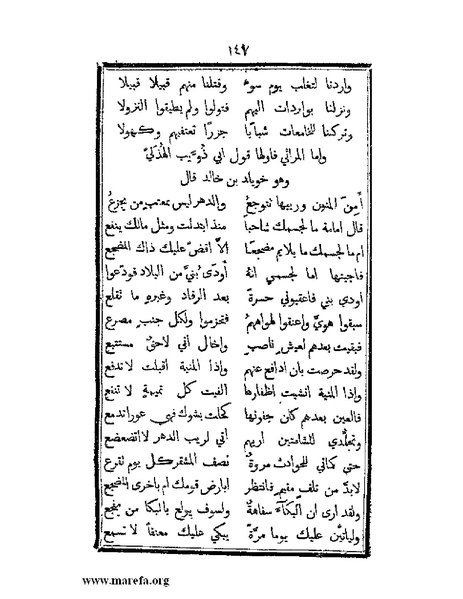 ١٤٧
واردنا لتغلب يوم سوء وقتلنا منهم قبيلا قبيلا
ونزلنا بواردات اليهم فتولوا ولم يطيقوا النزولا
وتركنا للخامعات شبابا جزرًا تعتفيهم وكهولا
واما المراثي فاولها قول ابي ذُويب الهُذليّ
وهو خويلد بن خالد قال
أَمِنَ المنون وريبها تتوجعُ والدهر ليس بمعتبٍ من يجزعُ
قال امامة ما لجسمك شاحباً منذ ابتدلت ومثل مالك ينفع
ام ما لجسمك ما يلايم مضجعًا الَّا اقضَّ عليك ذاك المضجع
فاجبتها اما لجسمي انهُ أَودَى بُنيَّ من البلاد فودّعوا
أودي بني فاعقبوني حسرة بعد الرقاد وعبرهِ ما تقلع
سبقوا هويَّ واعنقوا لهواهمُ فتخرموا ولكل جنبٍ مصرع
فبقيت بعدهم لعيشٍ ناصبٍ واخال أني لاحقٌ مستتبع
ولقد حرصت بان ادافع عنهم وإذا المنية اقبلت لا تدفع
وإذا المنية انشبت اظفارها الفيت كل تميمةٍ لا تنفع
فالعين بعدهم كأن جفونها كحلت بشوك فهي عور تدمع
وتجلّدي للشامتين اريهم أني لريب الدهر لا اتضعضع
حتى كأني للحوادث مروةٌ نصف المشقر كل يوم تقرع
لابدّ من تلف مقيم فانتظر ابارض قومك ام باخرى المضجع
ولقد ارى ان البكآءَ سفاهةٌ ولسوف يولع بالبكا من يفجع
وليأتينّ عليك يوما مرَّة يبكي عليك معنفاً لا تسمع
www.marefa.org